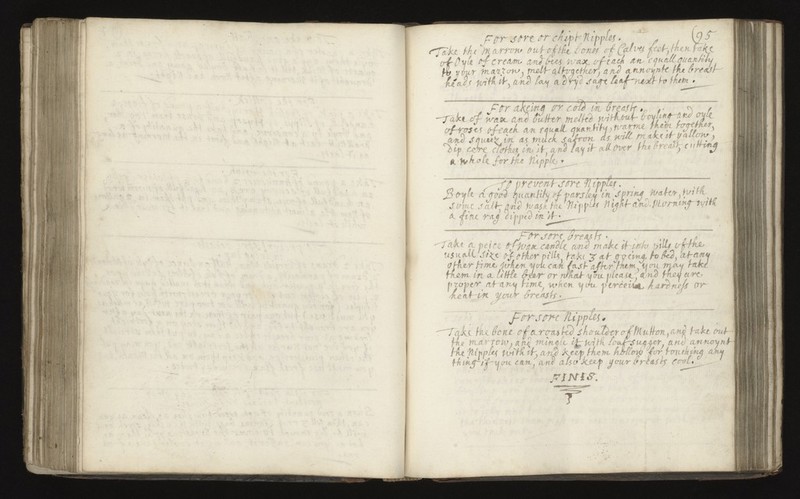 (95
For sore or chipt Nipples.
Take the marrow out of the bones of Calves feet, then take
of Oyle of cream and bees wax, of each an equall quantity
to your marrow, melt altogether, and annoynte the breast
heads with it, and lay a dry'd sage leaf next to them.
For akeing or cold in breasts.
Take of wax and butter melted without boyling and oyle
of roses of each an equall quantity, warme them together,
and squeez in as much safron as will make it yallow,
dip cere cloths in it, and lay it all over the breast, cutting
a whole for the Nipple.
To prevent sore Nipples.
Boyle a good quantity of persley in spring water, with
some salt, and wash the Nipples Night and Morning with
a fine rag dipped in it.
For sore breasts.
Take a peice of wax candle and make it into pills of the
usuall size of other pills, take 3 at goeing to bed, or at any
other time when you can fast after them, you may take
them in a little beer or what you please, and they are
proper at any time, when you perceive hardness or
heat in your breasts.
For sore Nipples.
Take the bone of a roasted shoulder of Mutton, and take out
the marrow, and mingle it with loaf sugger, and annoynt
the Nipples with it, and keep them hollow for touching any
thing if you can, and also keep your breasts cool.
FINIS.